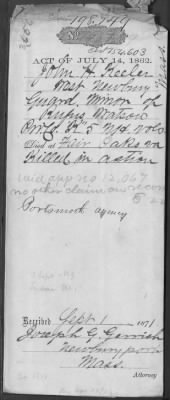 196.749
No
154.603
ACT OF JULY 14, 1862.
John H. Keeler
West Newbury
Guard. Minor of
Rufus Watson
Priv. K 5 N.H. Vols
Died at Fair Oaks Va
Killed in action
said app no 12,067
no other claim on record
Portsmouth agency
Received Sept 1 1871
Joseph G. Gerrish
Newburyport
Mass.
Attorney